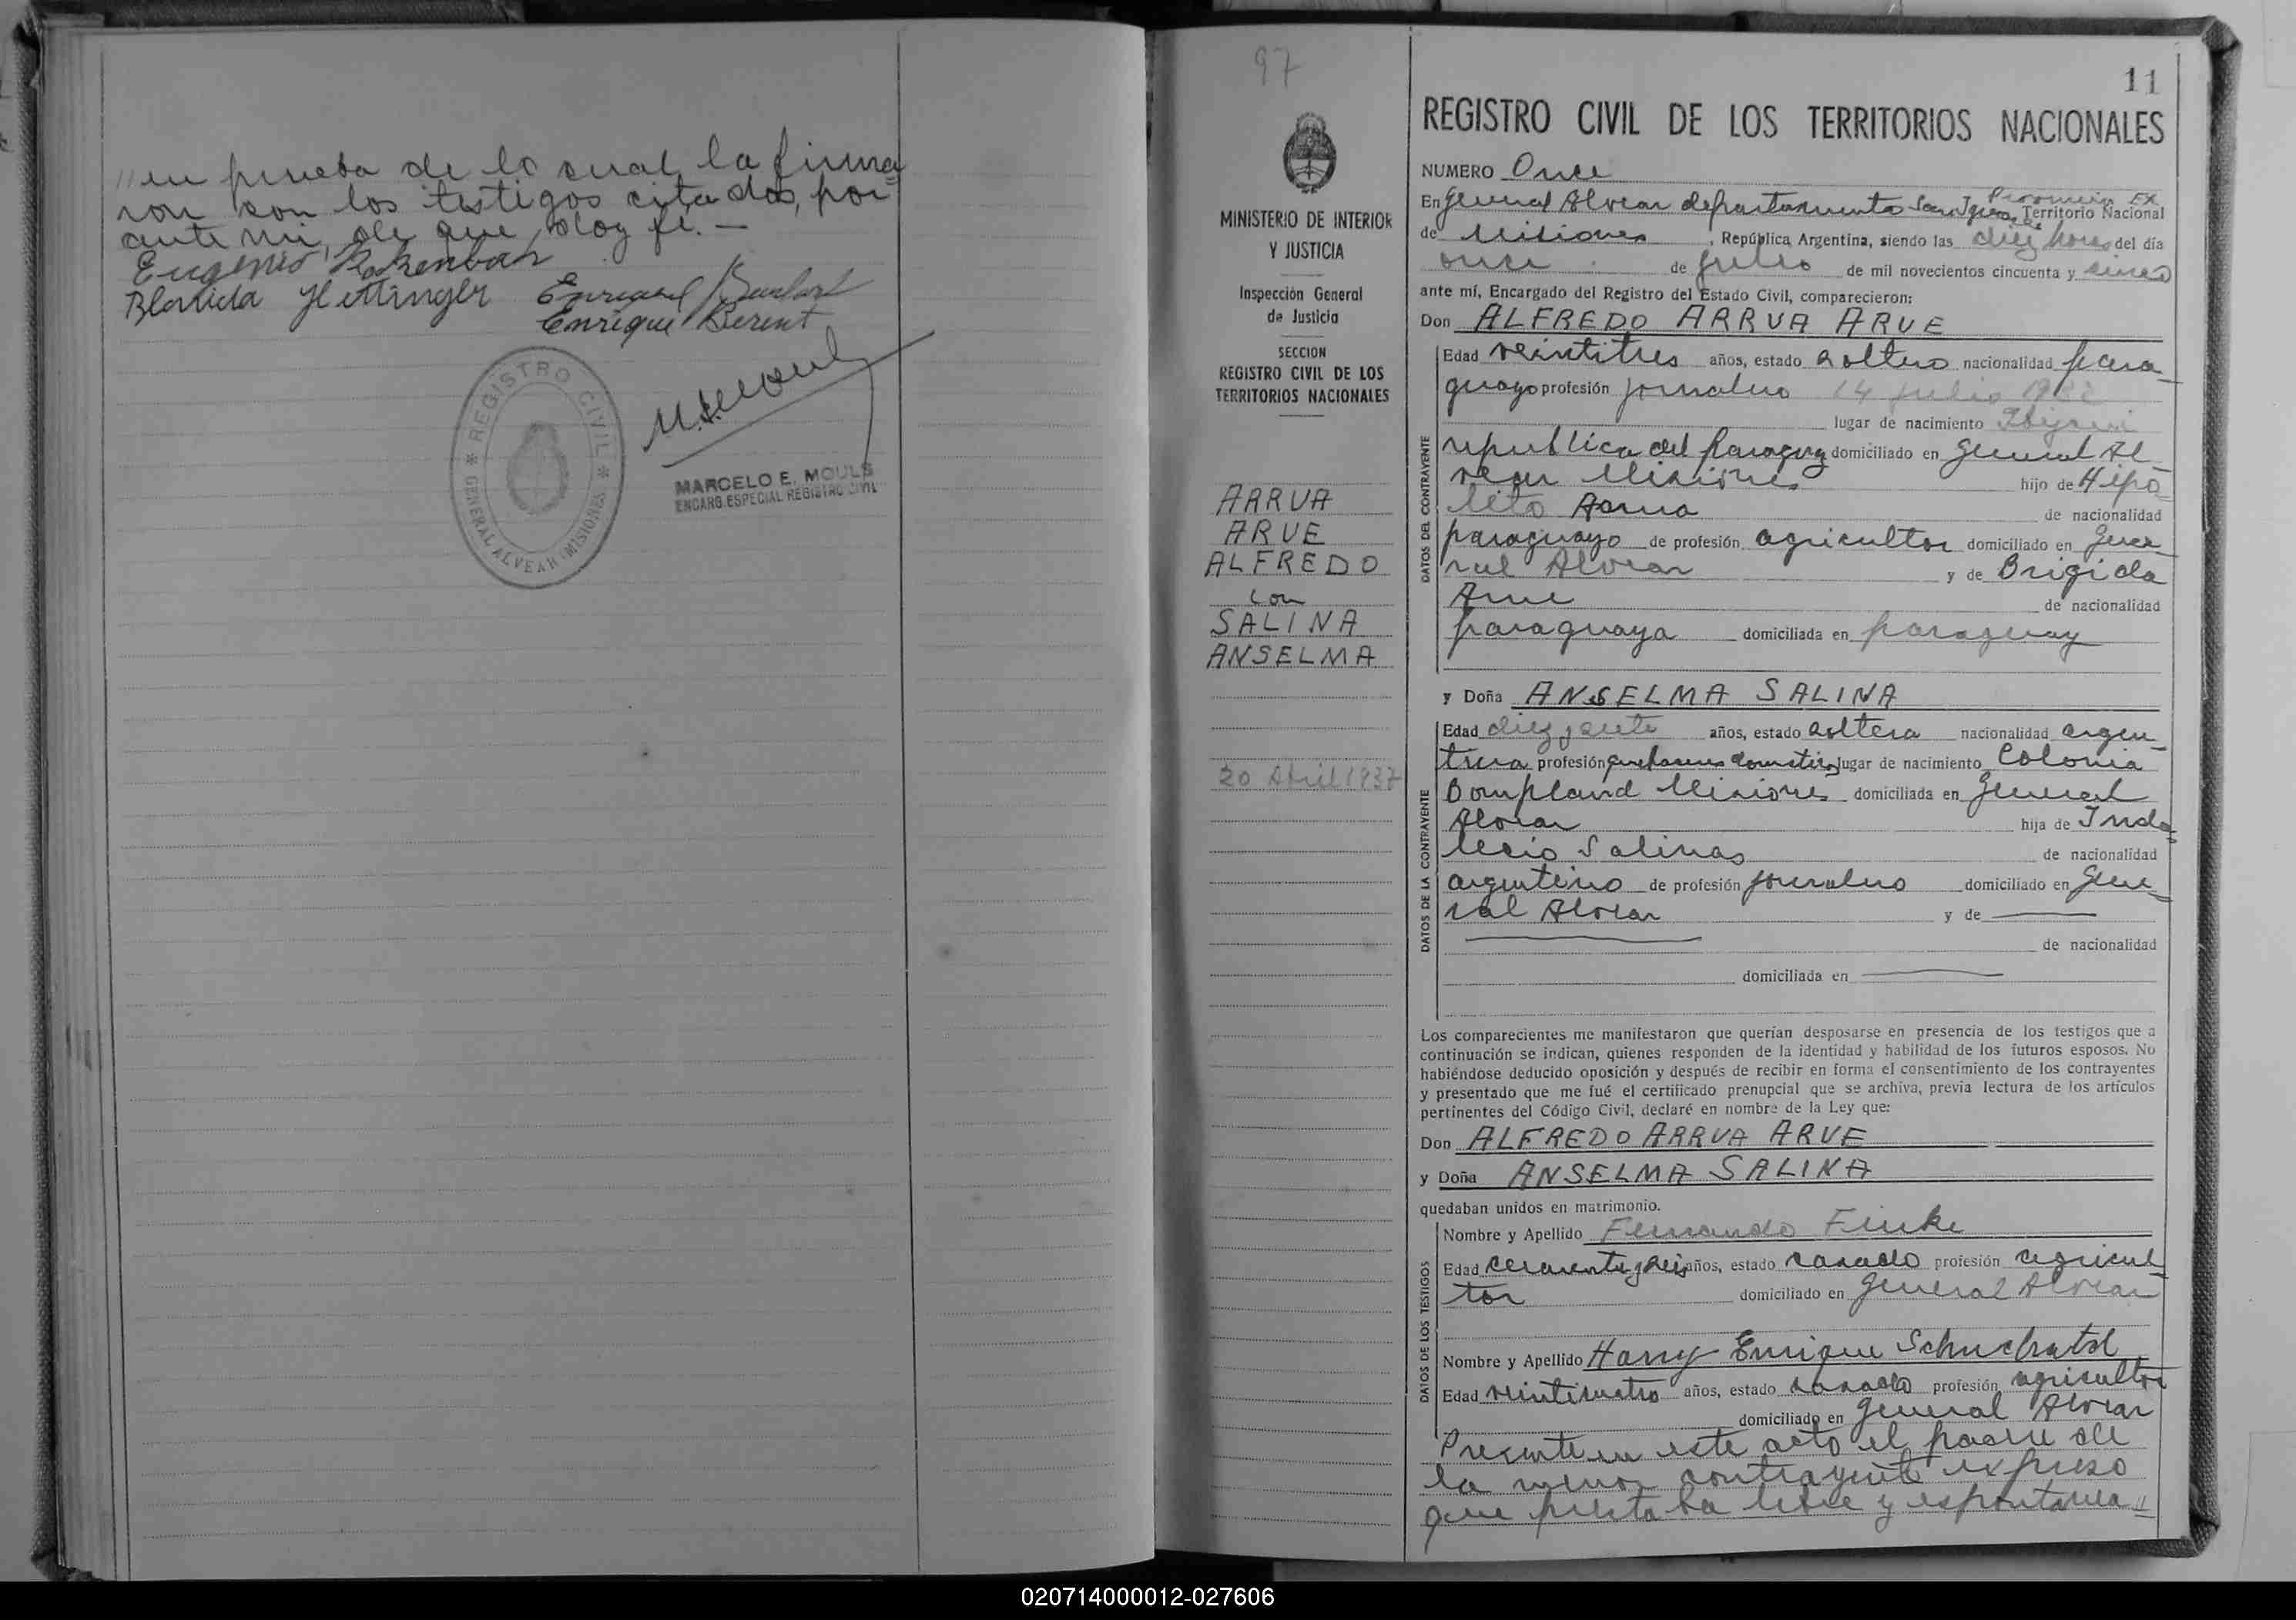 "en prueba de lo cual, la firma=
ron con los testigos citados, por
ante mi, de que doy fé. —
Eugenio
Blanida Hettinger Enrique
Enrique Berent
REGISTRO CIVIL
GENERAL ALVEAR (MISIONES)
MARCELO E. MOULS
ENCARG. ESPECIAL REGISTRO CIVIL
97
MINISTERIO DE INTERIOR
Y JUSTICIA
Inspección General
de Justicia
SECCION
REGISTRO CIVIL DE LOS
TERRITORIOS NACIONALES
ARRUA
ARVE
ALFREDO
con
SALINA
ANSELMA
20 Abril 1937
11
REGISTRO CIVIL DE LOS TERRITORIOS NACIONALES
NUMERO Once
Provincia Ex
En General Alvear departamento San Ignacio, Territorio Nacional
de Misiones, República Argentina, siendo las diez horas del día
once de julio de mil novecientos cincuenta y cinco
ante mí, Encargado del Registro del Estado Civil, comparecieron:
Don ALFREDO ARRUA ARVE
DATOS DEL CONTRAYENTE
Edad veintitres años, estado soltero nacionalidad para_
guayo profesión jornalero 14 julio
lugar de nacimiento
republica del Paraguay domiciliado en General Al_
vear Misiones hijo de Hipó_
lito Arrua de nacionalidad
paraguayo de profesión agricultor domiciliado en Gene_
ral Alvear y de Brigida
Arve de nacionalidad
paraguaya domiciliada en paraguay
y Doña ANSELMA SALINA
DATOS DE LA CONTRAYENTE
Edad diez y siete años, estado soltera nacionalidad argen_
tina profesión quehaceres domesticos lugar de nacimiento Colonia
Bompland Misiones domiciliada en General
Alvear hija de Inda=
lecio Salinas de nacionalidad
argentino de profesión jornalero domiciliado en Gene_
ral Alvear y de ———
——— de nacionalidad
domiciliada en ———
Los comparecientes me manifestaron que querían desposarse en presencia de los testigos que a
continuación se indican, quienes responden de la identidad y habilidad de los futuros esposos. No
habiéndose deducido oposición y después de recibir en forma el consentimiento de los contrayentes
y presentado que me fué el certificado prenupcial que se archiva, previa lectura de los artículos
pertinentes del Código Civil, declaré en nombre de la Ley que:
Don ALFREDO ARRUA ARVE
y Doña ANSELMA SALINA
quedaban unidos en matrimonio.
DATOS DE LOS TESTIGOS
Nombre y Apellido Fernando Finke
Edad cuarenta y seis años, estado casado profesión agricul_
tor domiciliado en General Alvear
Nombre y Apellido Harry Enrique
Edad veinticuatro años, estado casado profesión agricultor
domiciliado en General Alvear
Presente en este acto el padre de
la menor contrayente expreso
que presta ba libre y espontanea=
020714000012-027606